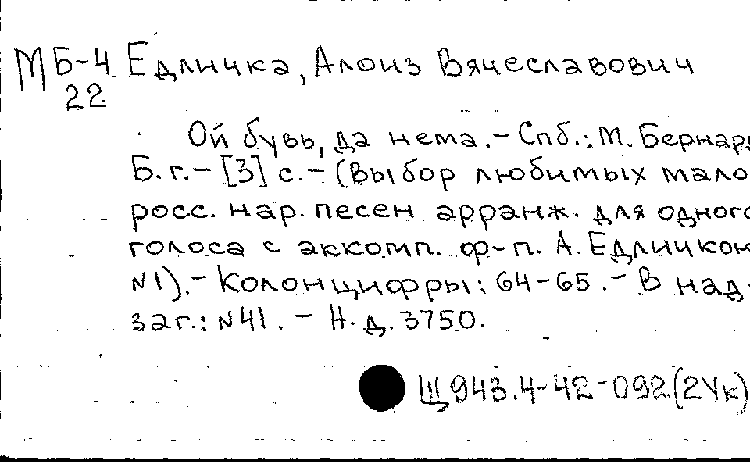 МБ-4 Едличка, Алоиз Вячеславович
22
Ой бувь, да нема. - Спб.: М. Бернард
Б. г. - [3] с. - (Выбор любимых мало-
росс. нар. песен арранж. для одного
голоса с аккомп. ф-п. А. Едличкой
№1). - Колонцифры: 64-65. - В над-
заг.: №41. - Н. д. 3750.
Щ943.4-42-092(2Ук)